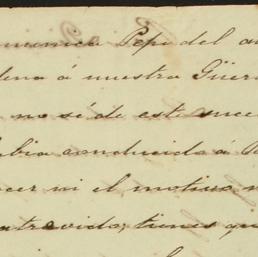 Pepe del
á nuestra Güer
no sé de este suce
bia conducido á
cer ni el motivo
atrevido; tienes que